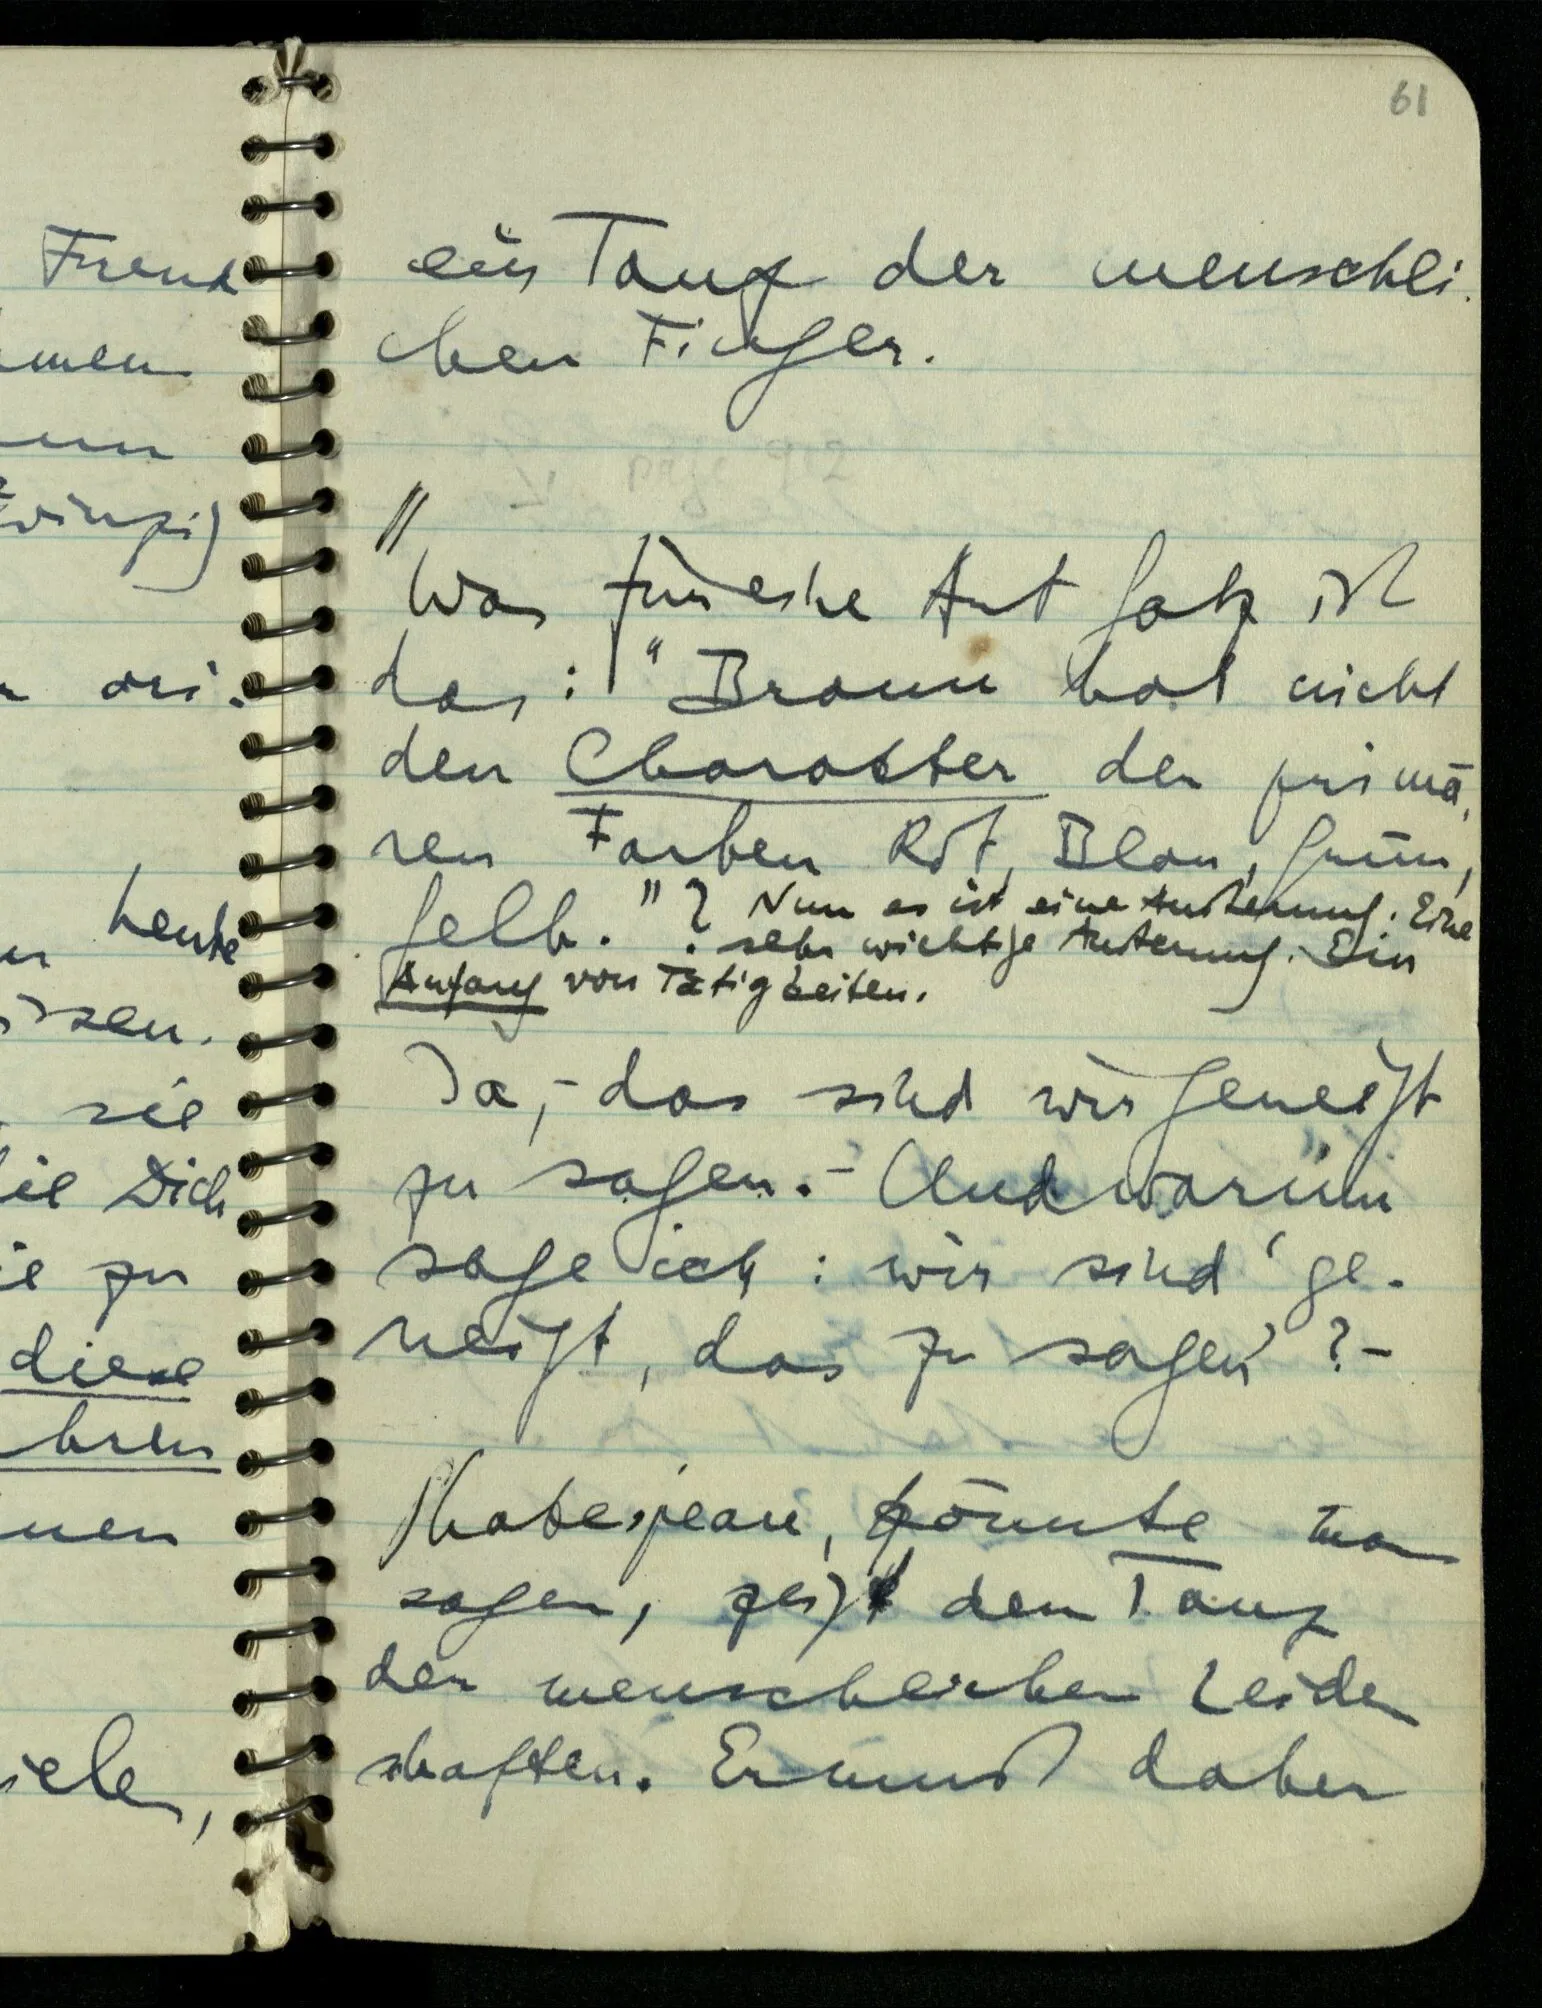 Freund
men
nn
)
ori.
heute
ssen.
sie
Dich
zu
diese
nen
iele,
61
ein Tanz der menschli-
chen Finger.
page 92
// Was für eine Art Satz ist
das: "Braun hat nicht
den Charakter der primä-
ren Farben Rot, Blau, Grün,
Gelb."? Nun es ist eine Äußerung. Eine
sehr wichtige Äußerung. Ein
Anfang von Tätigkeiten.
Ja, – das sind wir geneigt
zu sagen. – Und warum
sage ich: wir sind 'ge-
neigt, das zu sagen'? –
Shakespeare, könnte man
sagen, zeigt den Tanz
der menschlichen Leiden
schaften. Er muß daher